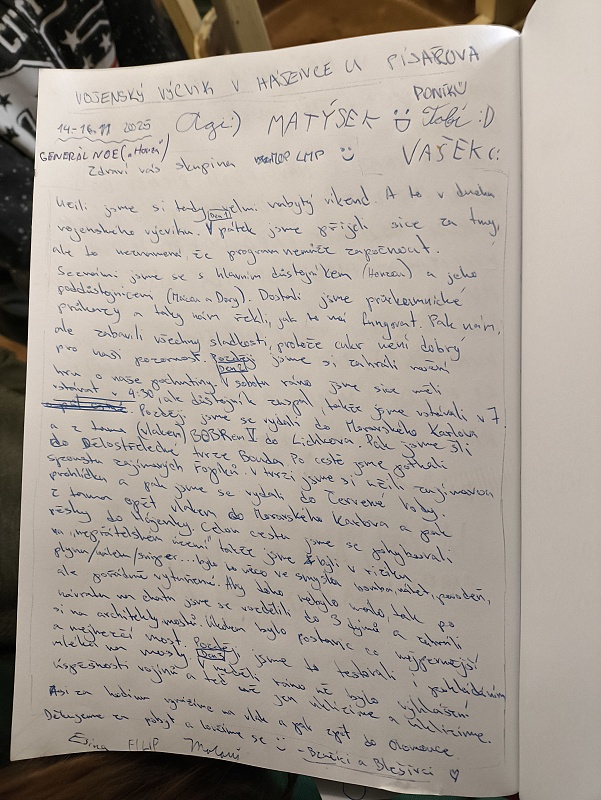 VOJENSKÝ VÝCVIK V HÁJENCE U PÍSAŘOVA
PONÍKŮ
14-16.11 2025 Agi:) MATÝSEK Tobi :D
GENERÁL NOE ("Honza") VAŠEK (:
Zdraví vás skupina TOP LMP
Užili jsme si tady velmi nabytý víkend. A to v duchu
vojenského výcviku. Den 1 V pátek jsme přijeli sice za tmy,
ale to neznamená, že program nemůže započnout.
Seznámili jsme se s hlavním důstojníkem (Honzou) a jeho
poddůstojnicemi (Máca a Dory). Dostali jsme průzkumnické
průkazy a taky nám řekli, jak to má fungovat. Pak nám,
ale zabavili všechny sladkosti, protože cukr není dobrý
pro naši pozornost. Později jsme si zahráli noční
hru o naše pochutiny. Den 2 V sobotu ráno jsme sice měli
vstávat v 4:30, ale důstojník zaspal, takže jsme vstávali v 7
Později jsme se vydali do Moravského Karlova
a z tama (vlakem) do Lichkova. Pak jsme šli
do Dělostřelecké tvrze Bouda. Po cestě jsme potkali
spoustu zajímavých řopíků. V tvrzi jsme si užili zajímavou
prohlídku a pak jsme se vydali do Červené Vody.
Z tama opět vlakem do Moravského Karlova a pak
pěšky do Hájenky. Celou cestu jsme se pohybovali
na "nepřátelském území" takže jsme byli v riziku
plynu/náletu/sniper... bylo to něco ve smyslu bomba, nálet, povodeň,
ale pořádně vytuněné. Aby toho nebylo málo, tak po
návratu na chatu jsme se rozdělili do 3 týmů a zahráli
si na architekty mostů. Úkolem bylo postavit co nejpevnější
a nejhezčí most. Později jsme to testovali pokládáním
mléka na mosty. Den 3 V neděli ráno už bylo vyhlášení
úspěšnosti vojínů a teď už jen uklízíme a uklízíme.
Asi za hodinu vyrážíme na vlak a pak zpět do Olomouce.
Děkujeme za pobyt a loučíme se - Benjíci a Blešivci
FILIP